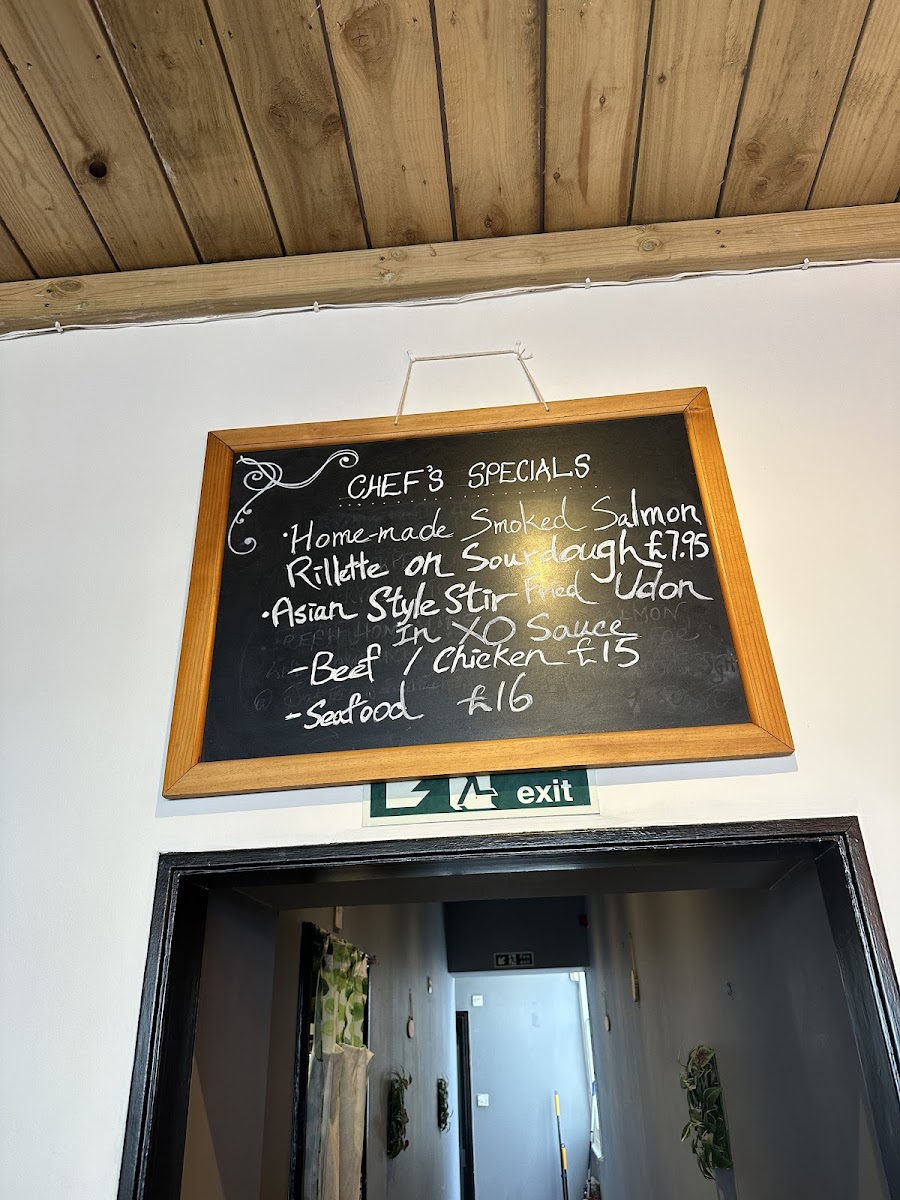 CHEF'S SPECIALS
·Home-made Smoked Salmon
Rillette on Sourdough £7.95
·Asian Style Stir Fried Udon
In XO Sauce
-Beef / Chicken £15
-Seafood £16
exit